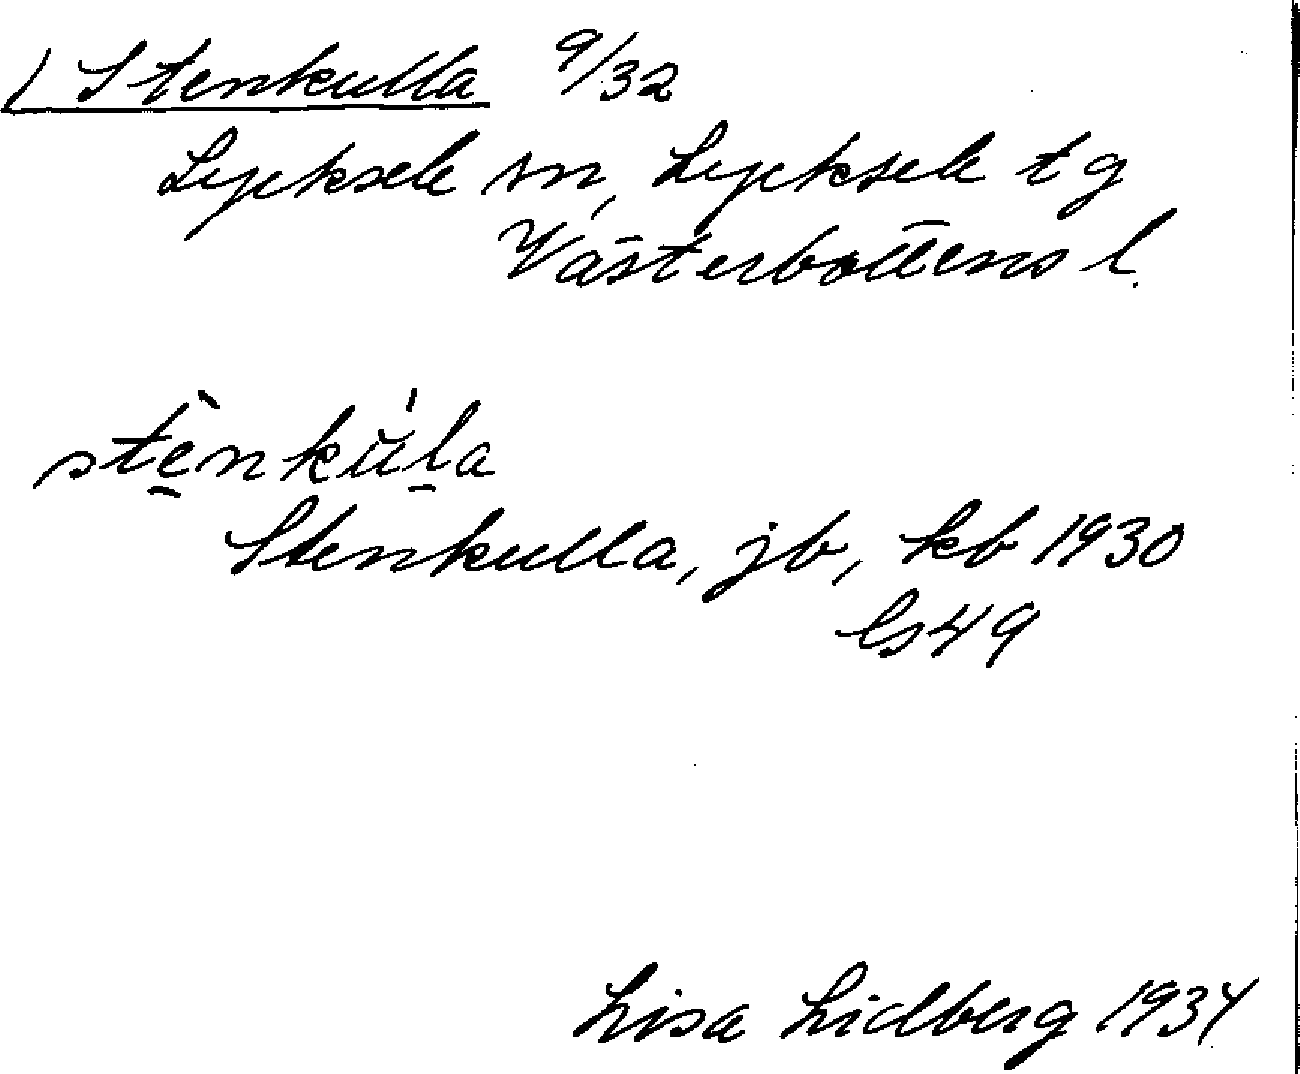 Stenkulla 9/32
Lycksele sn, Lycksele tg
Västerbottens l.
stènkúla
Stenkulla, jb, kb 1930
Gs49
Lisa Lidberg 1934